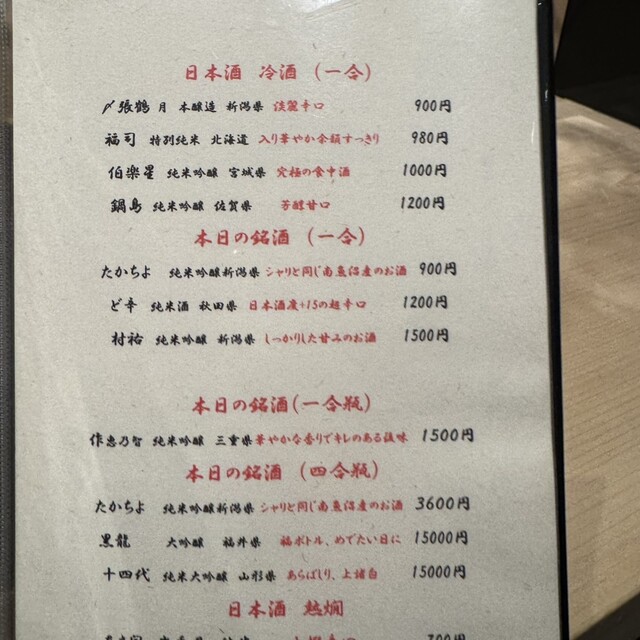 日本酒 冷酒（一合）
〆張鶴 月 本醸造 新潟県 淡麗辛口 900円
福司 特別純米 北海道 入り華やか余韻すっきり 980円
伯楽星 純米吟醸 宮城県 究極の食中酒 1000円
鍋島 純米吟醸 佐賀県 芳醇甘口 1200円
本日の銘酒（一合）
たかちよ 純米吟醸新潟県 シャリと同じ南魚沼産のお酒 900円
ど辛 純米酒 秋田県 日本酒度+15の超辛口 1200円
村祐 純米吟醸 新潟県 しっかりした甘みのお酒 1500円
本日の銘酒（一合瓶）
作恵乃智 純米吟醸 三重県華やかな香りでキレのある後味 1500円
本日の銘酒（四合瓶）
たかちよ 純米吟醸新潟県 シャリと同じ南魚沼産のお酒 3600円
黒龍 大吟醸 福井県 福ボトル、めでたい日に 15000円
十四代 純米大吟醸 山形県 あらばしり、上諸白 15000円
日本酒 熱燗
700円